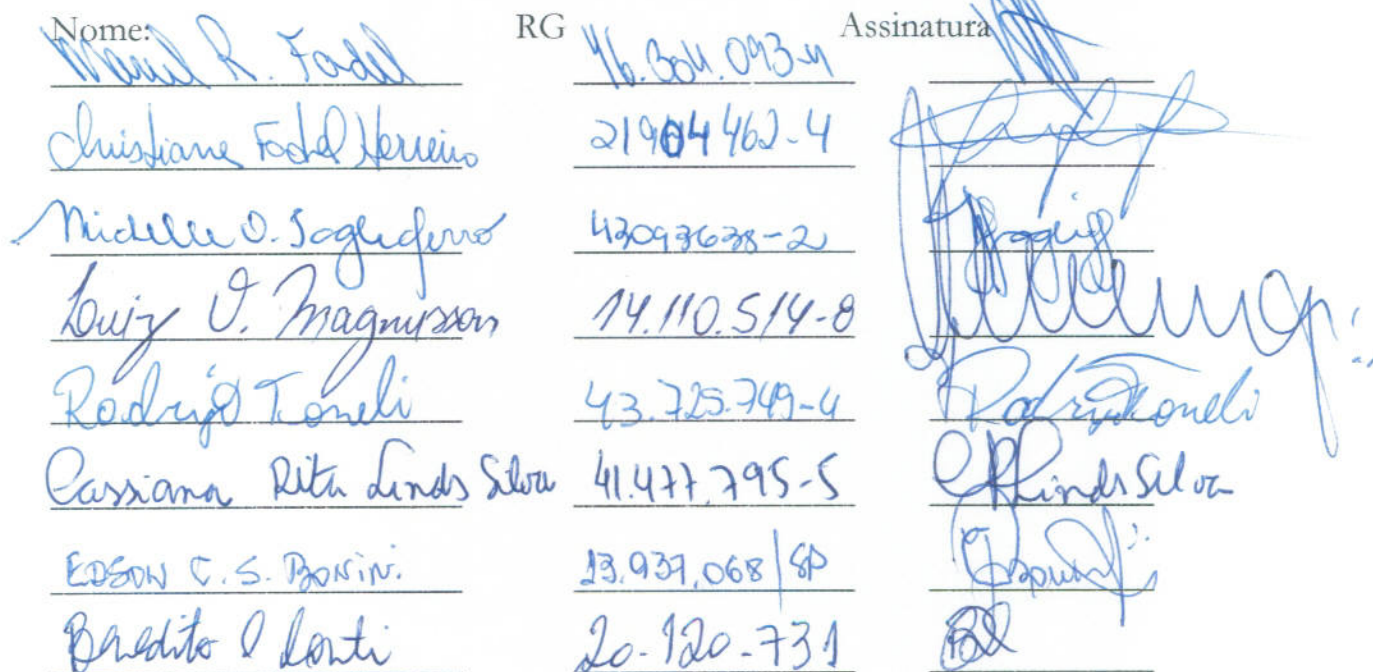 Nome: RG Assinatura
R. Fadel 46.304.093-4
Christiane Fadel Herreiro 21904462-4
Michelle O. Tagliaferro 43093638-2
Luiz O. Magnusson 14.110.514-8
Rodrigo Toneli 43.725.749-4 Rodrigo Toneli
Cassiana Rita Linds Silva 41.477.795-5 CRLinds Silva
EDSON C. S. BONINI. 13.937.068/SP
Benedito 20-120-731